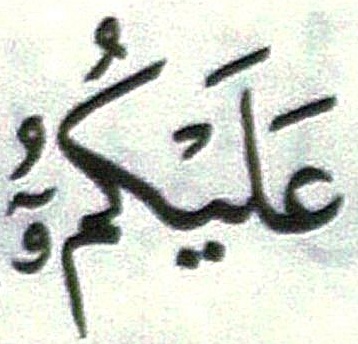 عَلَيْكُمُۥٓ